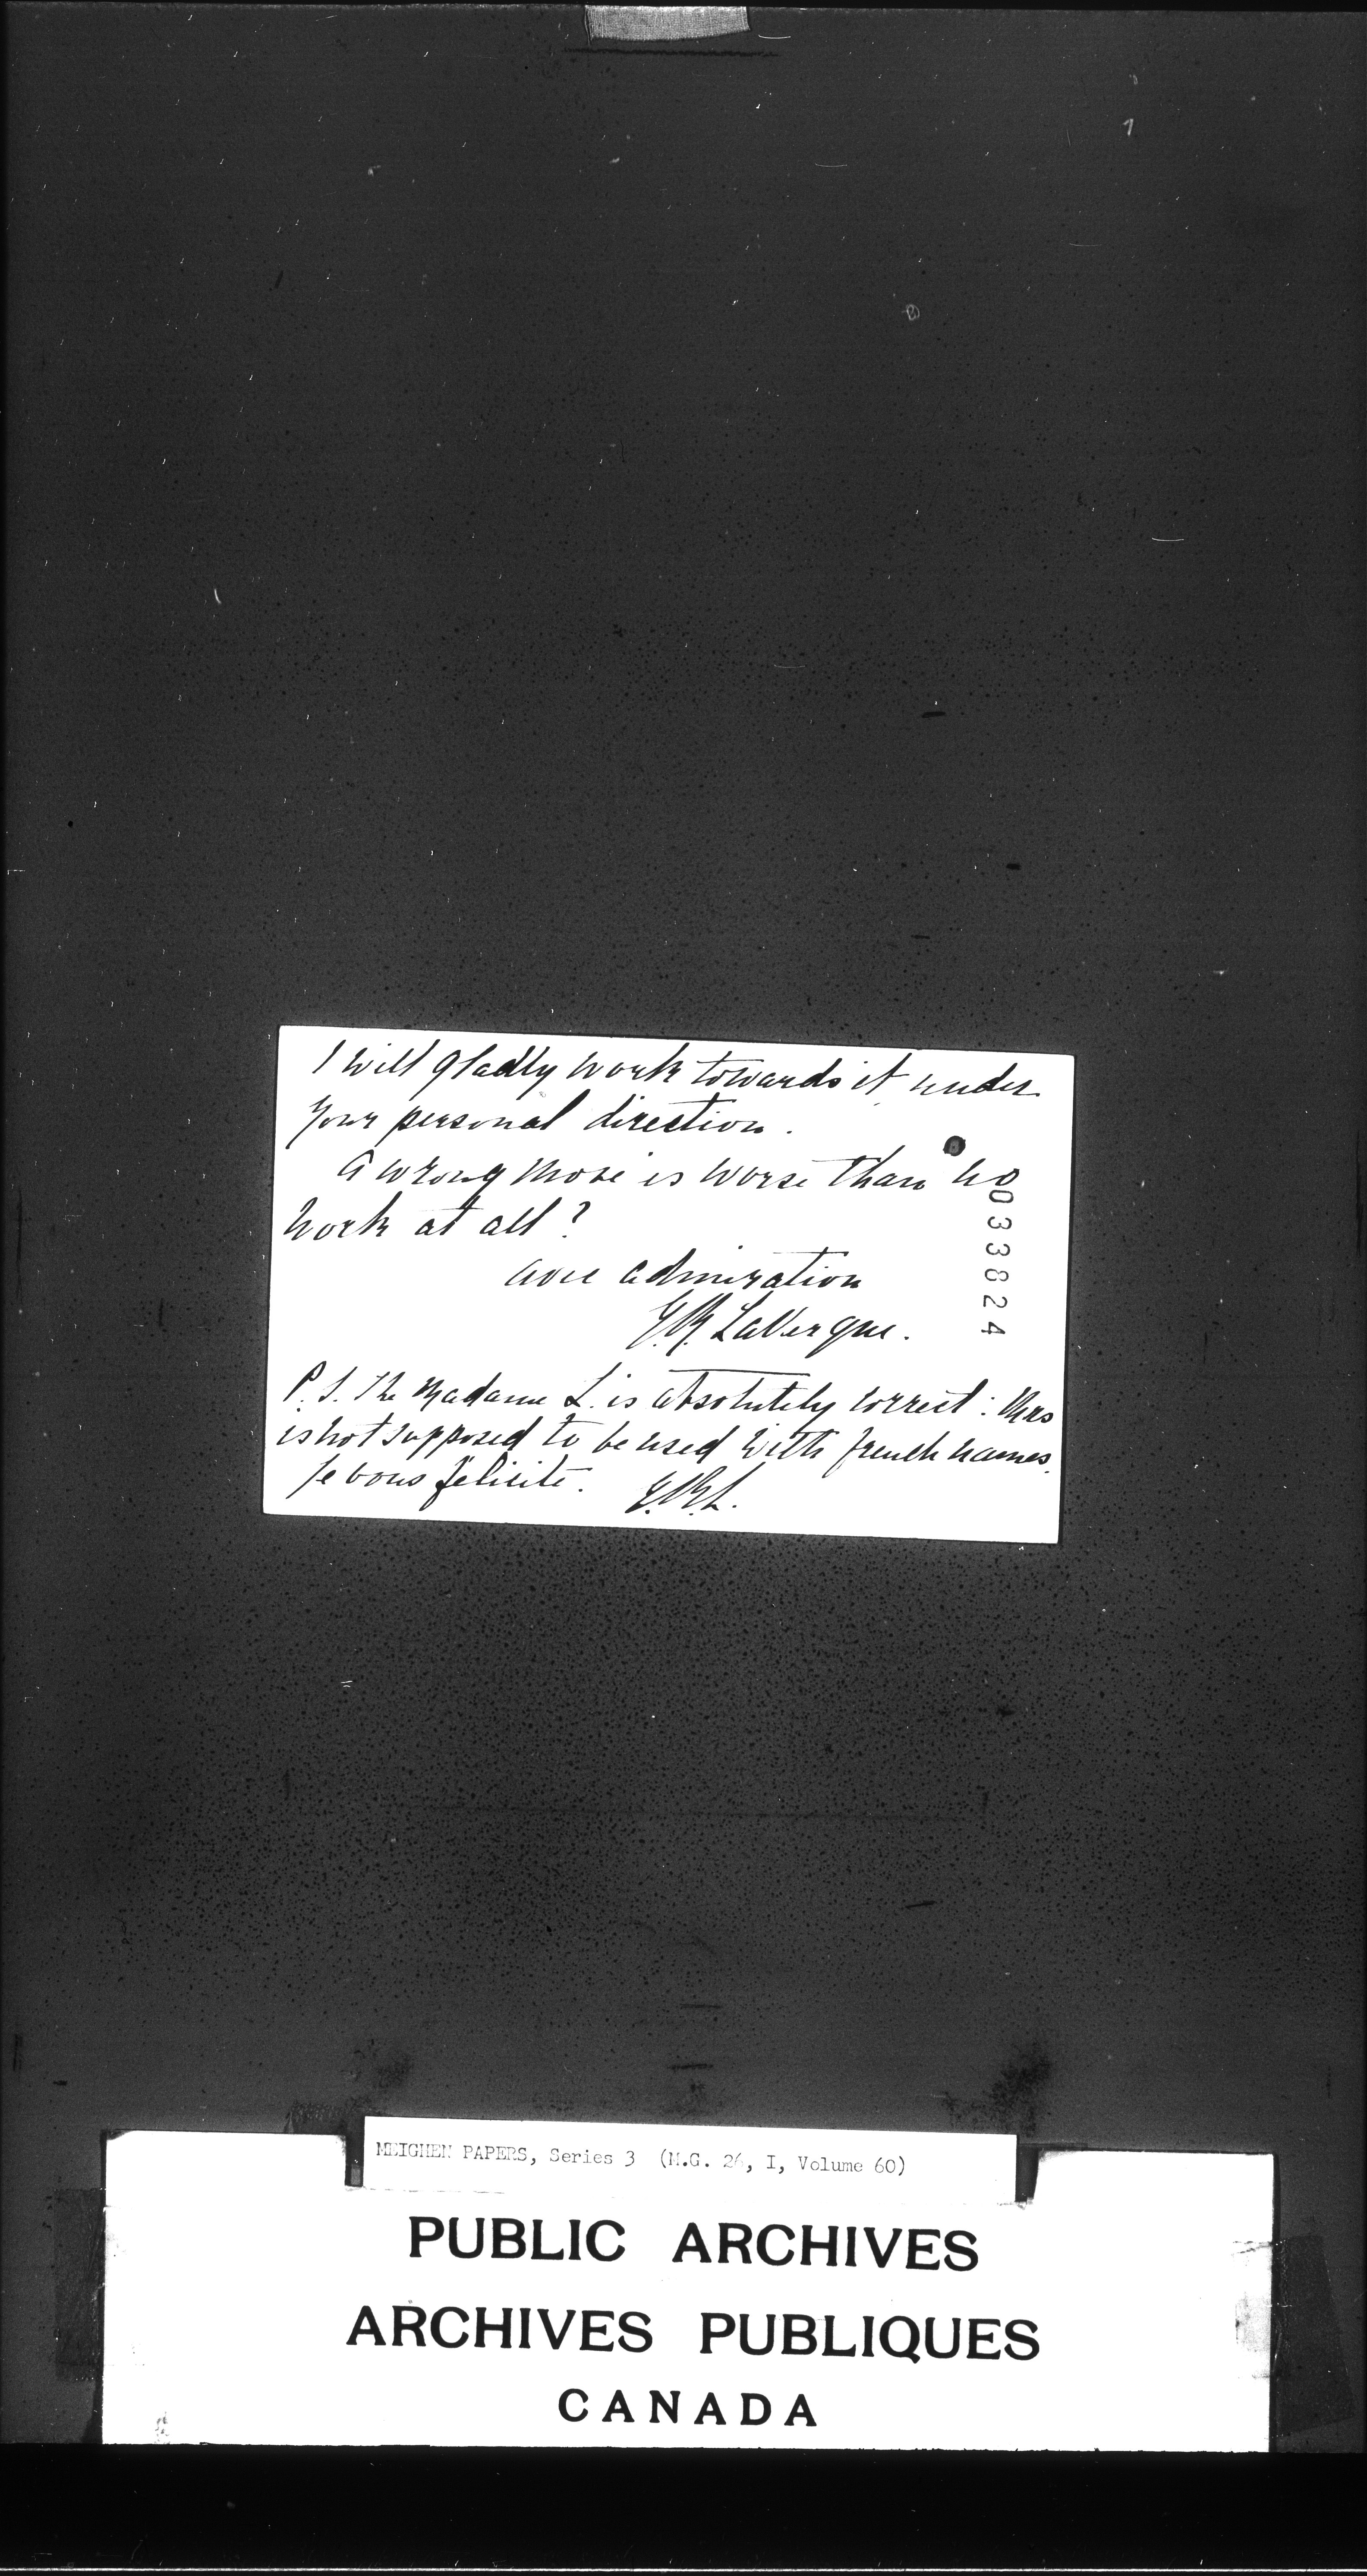 I will gladly work towards it under
your personal direction.
A wrong move is worse than no
work at all?
avec admiration
LaVergne.
P.S. The Madame L. is absolutely correct: Mrs
is not supposed to be used with french names.
Je vous félicite.
033824
MEIGHEN PAPERS, Series 3 (M.G. 26, I, Volume 60)
PUBLIC ARCHIVES
ARCHIVES PUBLIQUES
CANADA